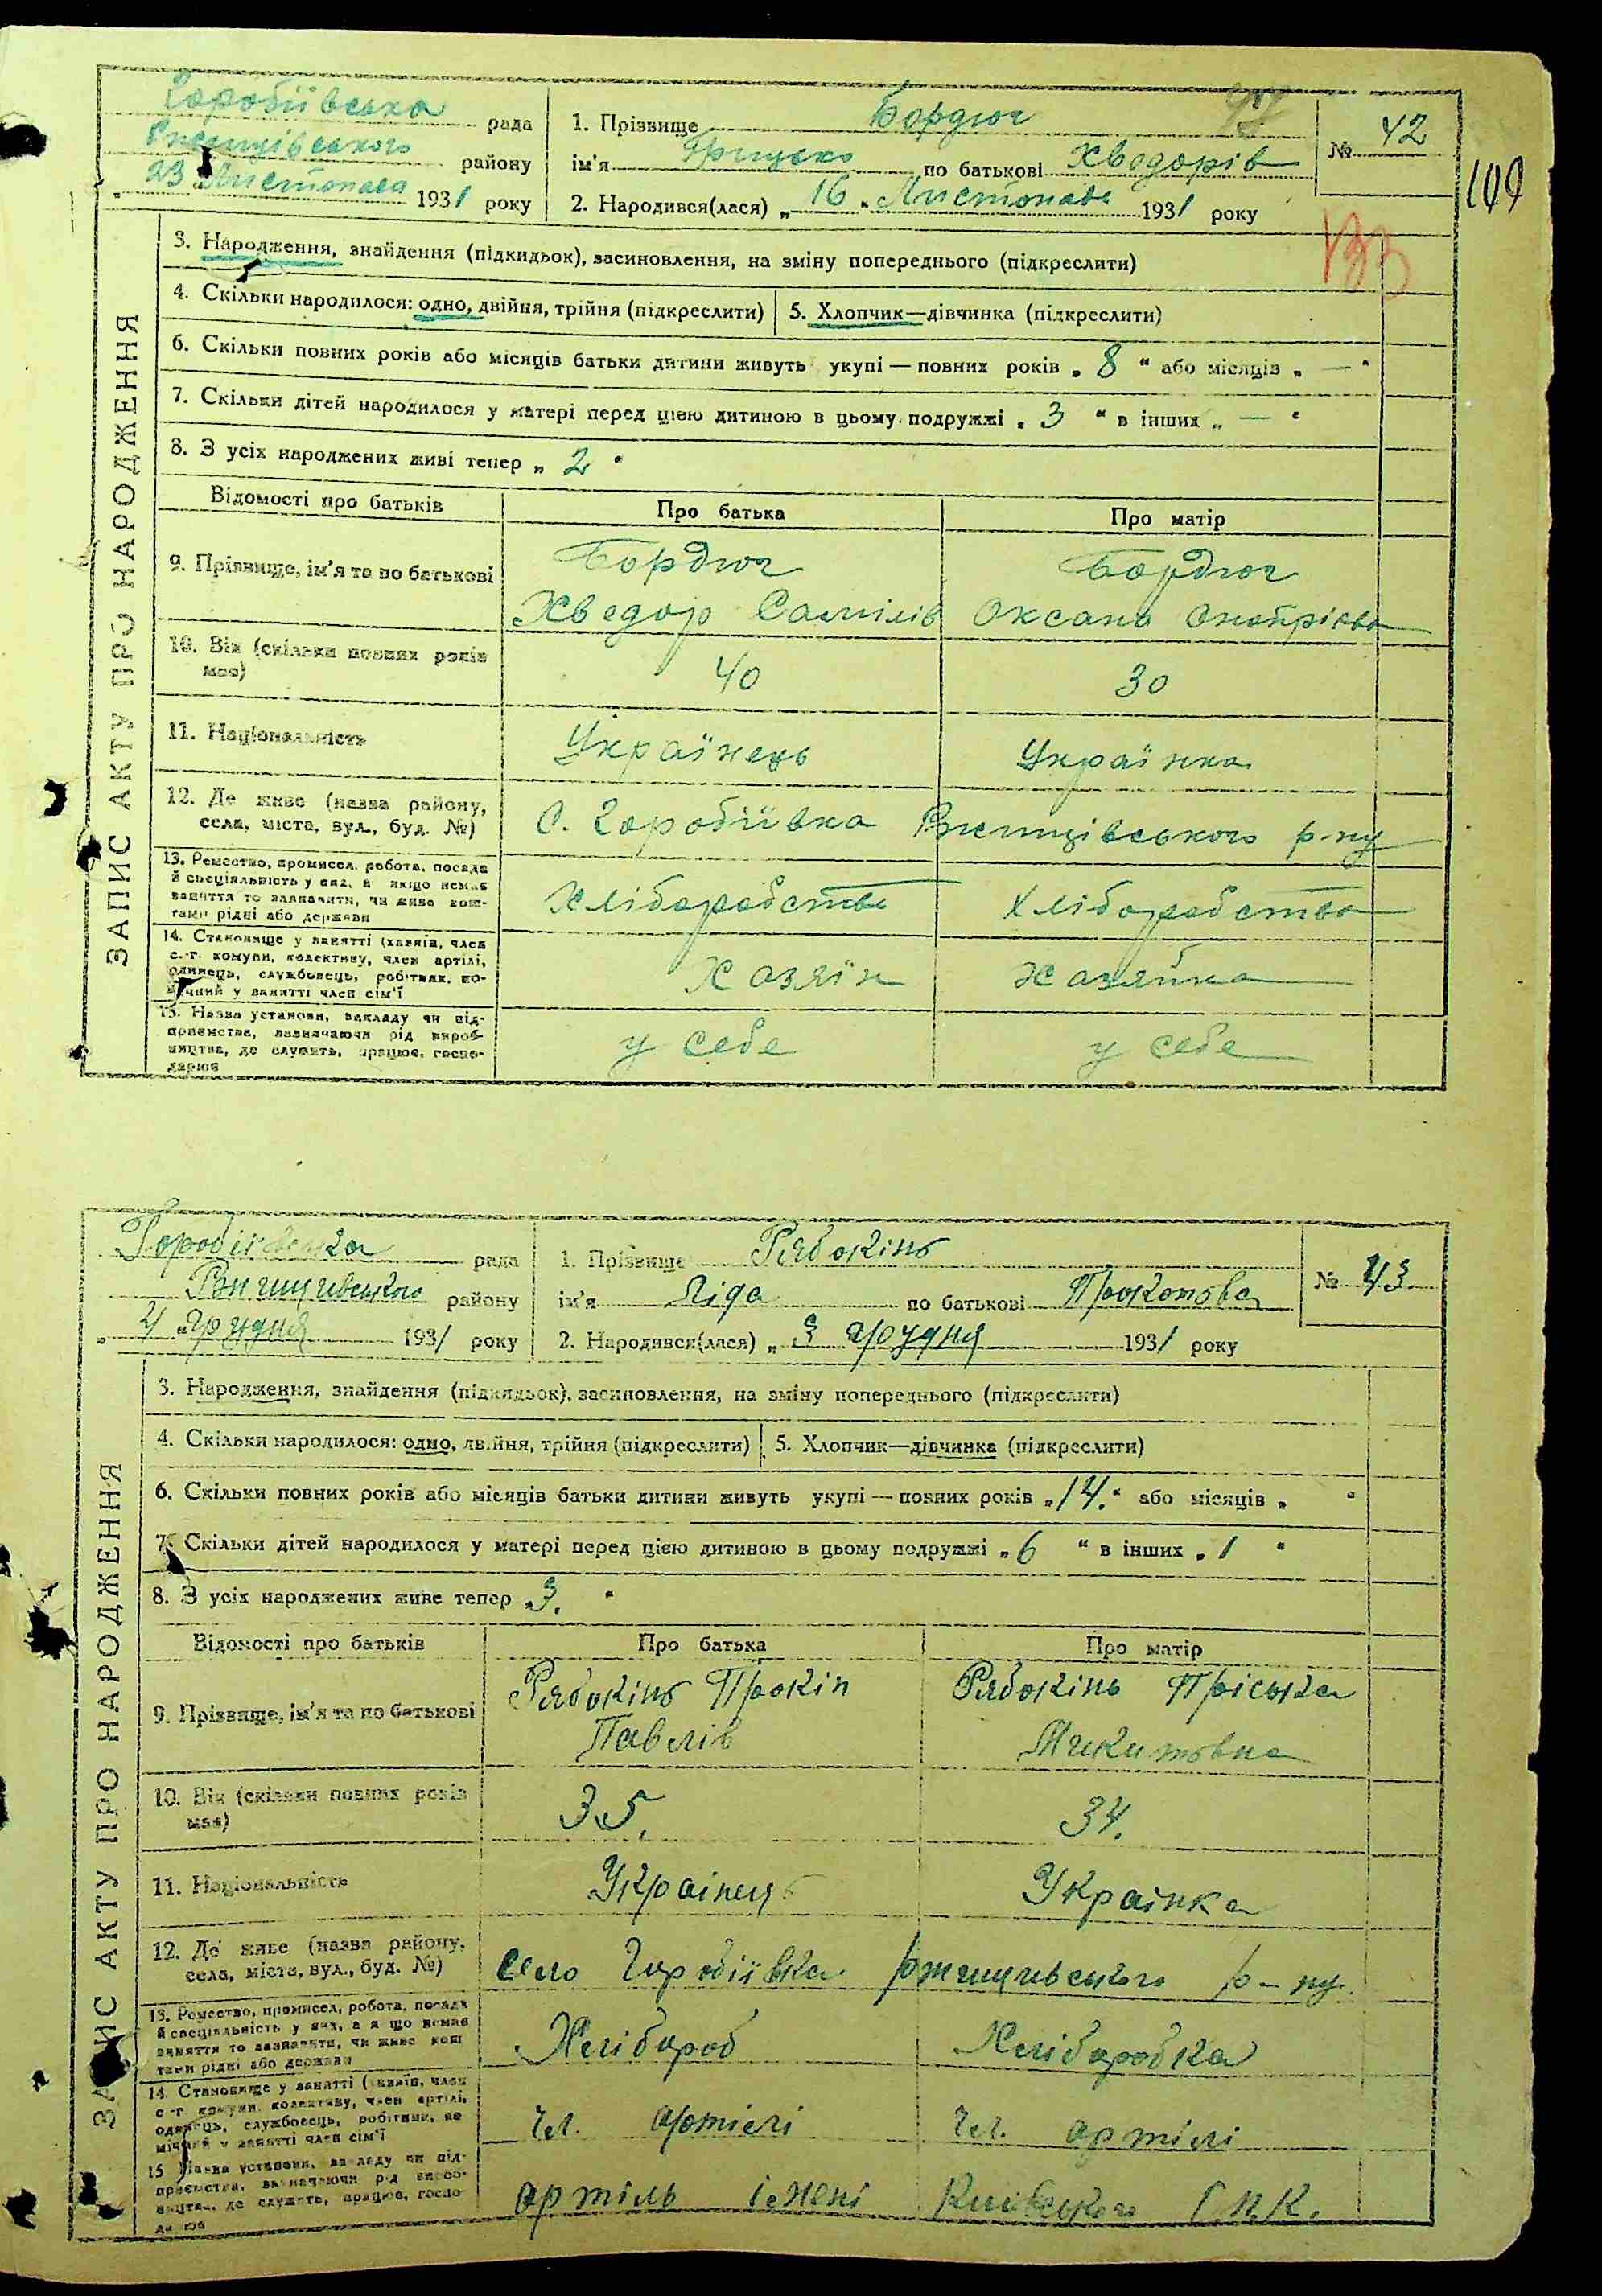 Горобіївська рада
Ржищівського району
" 23 " Листопада 1931 року
1. Прізвище Бордюг
ім'я Грицько по батькові Хведорів
2. Народився(лася) „ 16 " Листопада 1931 року
№ 42
97
109
133
ЗАПИС АКТУ ПРО НАРОДЖЕННЯ
3. Народження, знайдення (підкидьок), засиновлення, на зміну попереднього (підкреслити)
4. Скільки народилося: одно, двійня, трійня (підкреслити) 5. Хлопчик—дівчинка (підкреслити)
6. Скільки повних років або місяців батьки дитини живуть укупі — повних років „ 8 " або місяців „ — "
7. Скільки дітей народилося у матері перед цією дитиною в цьому подружжі „ 3 " в інших „ — "
8. З усіх народжених живі тепер „ 2 "
Відомості про батьків Про батька Про матір
9. Прізвище, ім'я та по батькові Бордюг Бордюг
Хведор Самілів Оксана Онопріївна
10. Вік (скільки повних років
має) 40 30
11. Національність Українець Українка
12. Де живе (назва району,
села, міста, вул., буд. №) С. Горобіївка Ржищівського р-ну
13. Ремество, промисел, робота, посада
й спеціяльність у них, а якщо немає
заняття то зазначити, чи живе кош-
тами рідні або держави Хліборобство Хліборобство
14. Становище у занятті (хазяїн, член
с.-г. комуни, колективу, член артілі,
одинець, службовець, робітник, по-
мічний у занятті член сім'ї Хазяїн Хазяйка
15. Назва установи, закладу чи під-
приємства, зазначаючи рід вироб-
ництва, де служить, працює, госпо-
дарює у себе у себе
Горобіївська рада
Ржищівського району
„ 4 " Грудня 1931 року
1. Прізвище Рябокінь
ім'я Ліда по батькові Прокопова
2. Народився(лася) „ 3 грудня 1931 року
№ 43
ЗАПИС АКТУ ПРО НАРОДЖЕННЯ
3. Народження, знайдення (підкидьок), засиновлення, на зміну попереднього (підкреслити)
4. Скільки народилося: одно, двійня, трійня (підкреслити) 5. Хлопчик—дівчинка (підкреслити)
6. Скільки повних років або місяців батьки дитини живуть укупі — повних років „ 14. " або місяців „ "
7. Скільки дітей народилося у матері перед цією дитиною в цьому подружжі „ 6 " в інших „ 1 "
8. З усіх народжених живе тепер „ 3. "
Відомості про батьків Про батька Про матір
9. Прізвище, ім'я та по батькові Рябокінь Прокіп Рябокінь Пріська
Павлів Микитовна
10. Вік (скільки повних років
має) 35. 34.
11. Національність Українець Українка
12. Де живе (назва району,
села, міста, вул., буд. №) село Горобіївка ржищивського р-ну.
13. Ремество, промисел, робота, посада
й спеціяльність у них, а якщо немає
заняття то зазначити, чи живе кош
тами рідні або держави Хлібороб Хліборобка
14. Становище у занятті (хазяїн, член
с.-г. комуни, колективу, член артілі,
одинець, службовець, робітник, по
мічний у занятті член сім'ї чл. артілі чл. артілі
15. Назва установи, закладу чи під-
приємства, зазначаючи рід вироб-
ництва, де служить, працює, госпо-
дарює артіль імені Київського